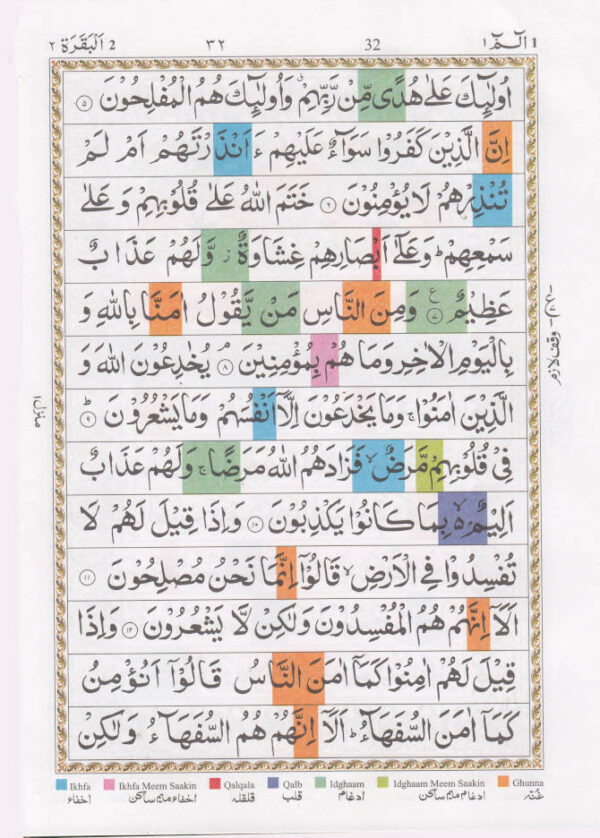 2 اَلْبَقَرَة ٢ ٣٢ 32 1 الٓـمّٓ ١
اُولٰٓئِكَ عَلٰى هُدًى مِّنْ رَّبِّهِمْ ۙ وَاُولٰٓئِكَ هُمُ الْمُفْلِحُوْنَ ۝٥
اِنَّ الَّذِيْنَ كَفَرُوْا سَوَآءٌ عَلَيْهِمْ ءَاَنْذَرْتَهُمْ اَمْ لَمْ
تُنْذِرْهُمْ لَا يُؤْمِنُوْنَ ۝٦ خَتَمَ اللّٰهُ عَلٰى قُلُوْبِهِمْ وَعَلٰى
سَمْعِهِمْ ؕ وَعَلٰٓى اَبْصَارِهِمْ غِشَاوَةٌ ز وَّلَهُمْ عَذَابٌ
عَظِيْمٌ ۝٧ ع وَمِنَ النَّاسِ مَنْ يَّقُوْلُ اٰمَنَّا بِاللّٰهِ وَ
بِالْيَوْمِ الْاٰخِرِ وَمَا هُمْ بِمُؤْمِنِيْنَ ۝٨ ۘ يُخٰدِعُوْنَ اللّٰهَ وَ
الَّذِيْنَ اٰمَنُوْا ۚ وَمَا يَخْدَعُوْنَ اِلَّاۤ اَنْفُسَهُمْ وَمَا يَشْعُرُوْنَ ۝٩ ؕ
فِيْ قُلُوْبِهِمْ مَّرَضٌ ۙ فَزَادَهُمُ اللّٰهُ مَرَضًا ۚ وَلَهُمْ عَذَابٌ
اَلِيْمٌۢ ۙ بِمَا كَانُوْا يَكْذِبُوْنَ ۝١٠ وَاِذَا قِيْلَ لَهُمْ لَا
تُفْسِدُوْا فِي الْاَرْضِ ۙ قَالُوْۤا اِنَّمَا نَحْنُ مُصْلِحُوْنَ ۝١١
اَلَاۤ اِنَّهُمْ هُمُ الْمُفْسِدُوْنَ وَلٰكِنْ لَّا يَشْعُرُوْنَ ۝١٢ وَاِذَا
قِيْلَ لَهُمْ اٰمِنُوْا كَمَاۤ اٰمَنَ النَّاسُ قَالُوْۤا اَنُؤْمِنُ
كَمَاۤ اٰمَنَ السُّفَهَآءُ ؕ اَلَاۤ اِنَّهُمْ هُمُ السُّفَهَآءُ وَلٰكِنْ
وقف لازم
منزل ١
Ikhfa Ikhfa Meem Saakin Qalqala Qalb Idghaam Idghaam Meem Saakin Ghunna
اخفاء اخفاء میم ساکن قلقلہ قلب ادغام ادغام میم ساکن غنّہ